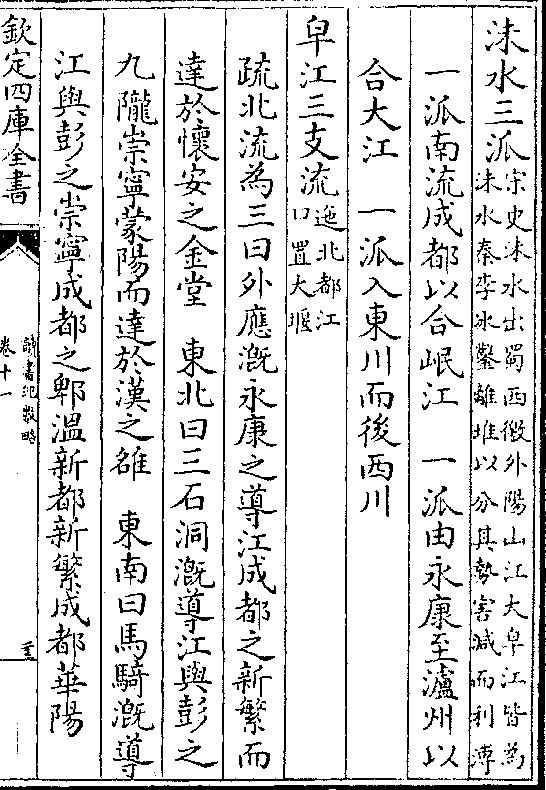 沫水三派宋史沫水出蜀西徼外陽山江大皁江皆為
沫水秦李冰鑿離堆以分其勢害減而利溥
一派南流成都以合岷江　一派由永康至瀘州以
合大江　一派入東川而後西川
皁江三支流迤北都江
口置大堰
疏北流為三曰外應溉永康之導江成都之新繁而
達於懷安之金堂　東北曰三石洞溉導江與彭之
九隴崇寧蒙陽而達於漢之雒　東南曰馬騎溉導
江與彭之崇寧成都之郫溫新都新繁成都華陽
欽定四庫全書
讀書紀數略
卷十一